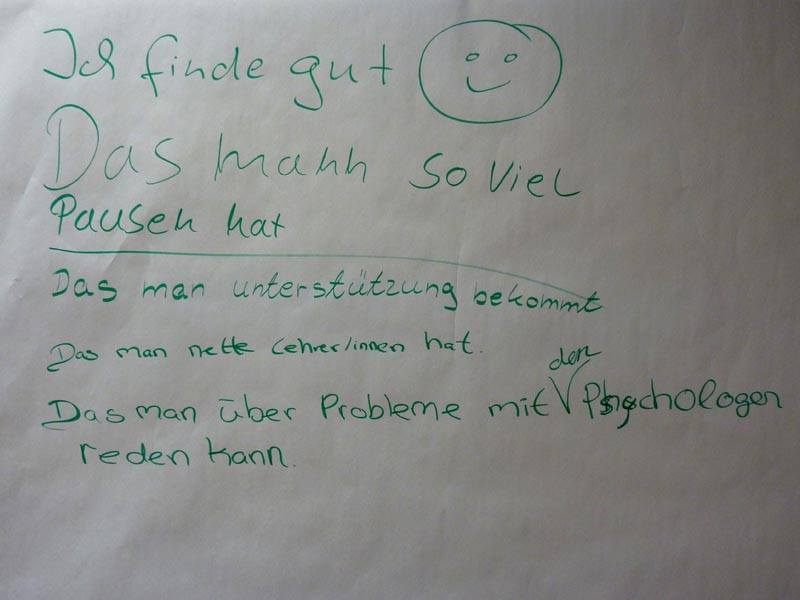 Ich finde gut
Das mann so viel
Pausen hat
Das man unterstützung bekommt
Das man nette Lehrer/innen hat.
Das man über Probleme mit den Psychologen
reden kann.